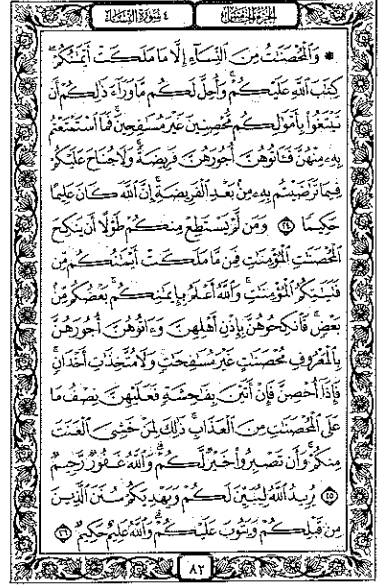 الجزء الخامس ٤ سورة النساء
۞ وَٱلۡمُحۡصَنَٰتُ مِنَ ٱلنِّسَآءِ إِلَّا مَا مَلَكَتۡ أَيۡمَٰنُكُمۡۖ
كِتَٰبَ ٱللَّهِ عَلَيۡكُمۡۚ وَأُحِلَّ لَكُم مَّا وَرَآءَ ذَٰلِكُمۡ أَن
تَبۡتَغُواْ بِأَمۡوَٰلِكُم مُّحۡصِنِينَ غَيۡرَ مُسَٰفِحِينَۚ فَمَا ٱسۡتَمۡتَعۡتُم
بِهِۦ مِنۡهُنَّ فَـَٔاتُوهُنَّ أُجُورَهُنَّ فَرِيضَةٗۚ وَلَا جُنَاحَ عَلَيۡكُمۡ
فِيمَا تَرَٰضَيۡتُم بِهِۦ مِنۢ بَعۡدِ ٱلۡفَرِيضَةِۚ إِنَّ ٱللَّهَ كَانَ عَلِيمًا
حَكِيمٗا ٢٤ وَمَن لَّمۡ يَسۡتَطِعۡ مِنكُمۡ طَوۡلًا أَن يَنكِحَ
ٱلۡمُحۡصَنَٰتِ ٱلۡمُؤۡمِنَٰتِ فَمِن مَّا مَلَكَتۡ أَيۡمَٰنُكُم مِّن
فَتَيَٰتِكُمُ ٱلۡمُؤۡمِنَٰتِۚ وَٱللَّهُ أَعۡلَمُ بِإِيمَٰنِكُمۚ بَعۡضُكُم مِّنۢ
بَعۡضٖۚ فَٱنكِحُوهُنَّ بِإِذۡنِ أَهۡلِهِنَّ وَءَاتُوهُنَّ أُجُورَهُنَّ
بِٱلۡمَعۡرُوفِ مُحۡصَنَٰتٍ غَيۡرَ مُسَٰفِحَٰتٖ وَلَا مُتَّخِذَٰتِ أَخۡدَانٖۚ
فَإِذَآ أُحۡصِنَّ فَإِنۡ أَتَيۡنَ بِفَٰحِشَةٖ فَعَلَيۡهِنَّ نِصۡفُ مَا
عَلَى ٱلۡمُحۡصَنَٰتِ مِنَ ٱلۡعَذَابِۚ ذَٰلِكَ لِمَنۡ خَشِيَ ٱلۡعَنَتَ
مِنكُمۡۚ وَأَن تَصۡبِرُواْ خَيۡرٞ لَّكُمۡۗ وَٱللَّهُ غَفُورٞ رَّحِيمٞ
٢٥ يُرِيدُ ٱللَّهُ لِيُبَيِّنَ لَكُمۡ وَيَهۡدِيَكُمۡ سُنَنَ ٱلَّذِينَ
مِن قَبۡلِكُمۡ وَيَتُوبَ عَلَيۡكُمۡۗ وَٱللَّهُ عَلِيمٌ حَكِيمٞ ٢٦
٨٢